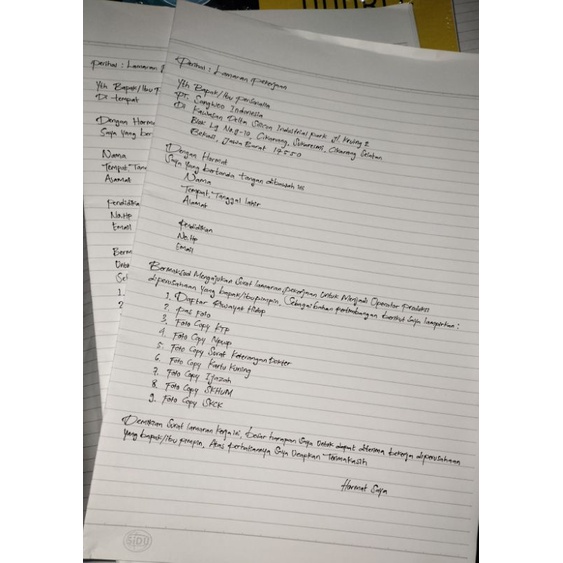 Perihal : Lamaran Pekerjaan
Yth Bapak/Ibu Personalia
PT. Sungwoo Indonesia
Di Kawasan Delta Silicon Industrial Park Jl. Kruing 2
Blok L9 No 8-10, Cikarang, Sukaresmi, Cikarang Selatan
Bekasi, Jawa Barat 17550
Dengan Hormat
Saya yang bertanda tangan dibawah ini
Nama
Tempat, Tanggal lahir
Alamat
Pendidikan
No. Hp
Email
Bermaksud Mengajukan Surat lamaran pekerjaan Untuk Menjadi Operator Produksi
diperusahaan yang bapak/ibu pimpin, Sebagai bahan pertimbangan berikut Saya lampirkan :
1. Daftar Riwayat Hidup
2. Pas Foto
3. Foto Copy KTP
4. Foto Copy Npwp
5. Foto Copy Surat Keterangan Dokter
6. Foto Copy Kartu Kuning
7. Foto Copy Ijazah
8. Foto Copy SKHUN
9. Foto Copy SKCK
Demikian Surat lamaran kerja ini, besar harapan Saya Untuk dapat diterima bekerja diperusahaan
yang bapak/Ibu pimpin, Atas perhatiannya Saya Ucapkan Terimakasih
Hormat Saya
SIDU
Perihal : Lamaran
Yth Bapak/Ibu P
Di tempat
Dengan Horm
Saya yang ber
Nama
Tempat, Tang
Alamat
Pendidika
No. Hp
Email
Berm
Untu
1.
2